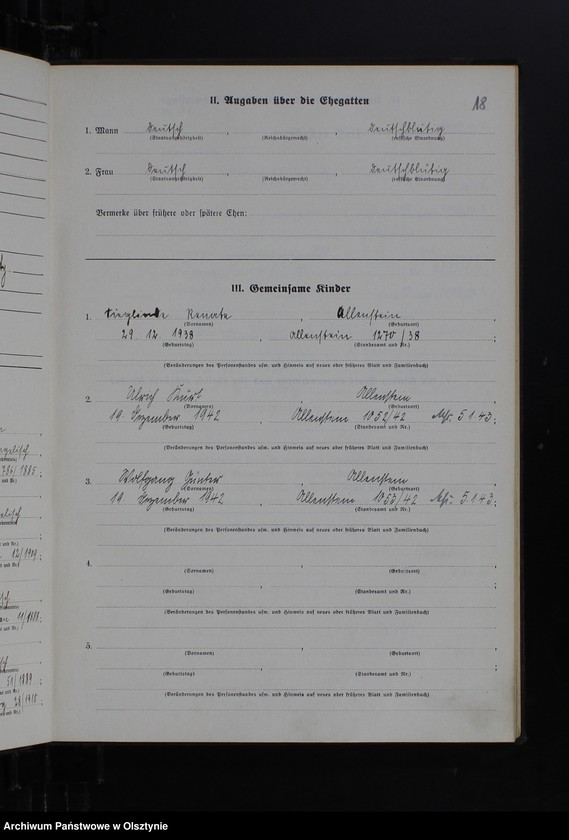 18
II. Angaben über die Ehegatten
1. Mann Deutsch, , Deutschblütig
(Staatsangehörigkeit) (Reichsbürgerrecht) (rassische Einordnung)
2. Frau Deutsch, , Deutschblütig
(Staatsangehörigkeit) (Reichsbürgerrecht) (rassische Einordnung)
Vermerke über frühere oder spätere Ehen:
III. Gemeinsame Kinder
1. Sieglinde Renate, Allenstein
(Vornamen) (Geburtsort)
29 12 1938, Allenstein 1270/38;
(Geburtstag) (Standesamt und Nr.)
(Veränderungen des Personenstandes usw. und Hinweis auf neues oder früheres Blatt und Familienbuch)
2. Ulrich Kurt, Allenstein
(Vornamen) (Geburtsort)
19. Dezember 1942, Allenstein 1052/42 5.1.43;
(Geburtstag) (Standesamt und Nr.)
(Veränderungen des Personenstandes usw. und Hinweis auf neues oder früheres Blatt und Familienbuch)
3. Wolfgang Günter, Allenstein
(Vornamen) (Geburtsort)
19. Dezember 1942, Allenstein 1053/42 5.1.43;
(Geburtstag) (Standesamt und Nr.)
(Veränderungen des Personenstandes usw. und Hinweis auf neues oder früheres Blatt und Familienbuch)
4. ,
(Vornamen) (Geburtsort)
, ;
(Geburtstag) (Standesamt und Nr.)
(Veränderungen des Personenstandes usw. und Hinweis auf neues oder früheres Blatt und Familienbuch)
5. ,
(Vornamen) (Geburtsort)
, ;
(Geburtstag) (Standesamt und Nr.)
(Veränderungen des Personenstandes usw. und Hinweis auf neues oder früheres Blatt und Familienbuch)
Archiwum Państwowe w Olsztynie